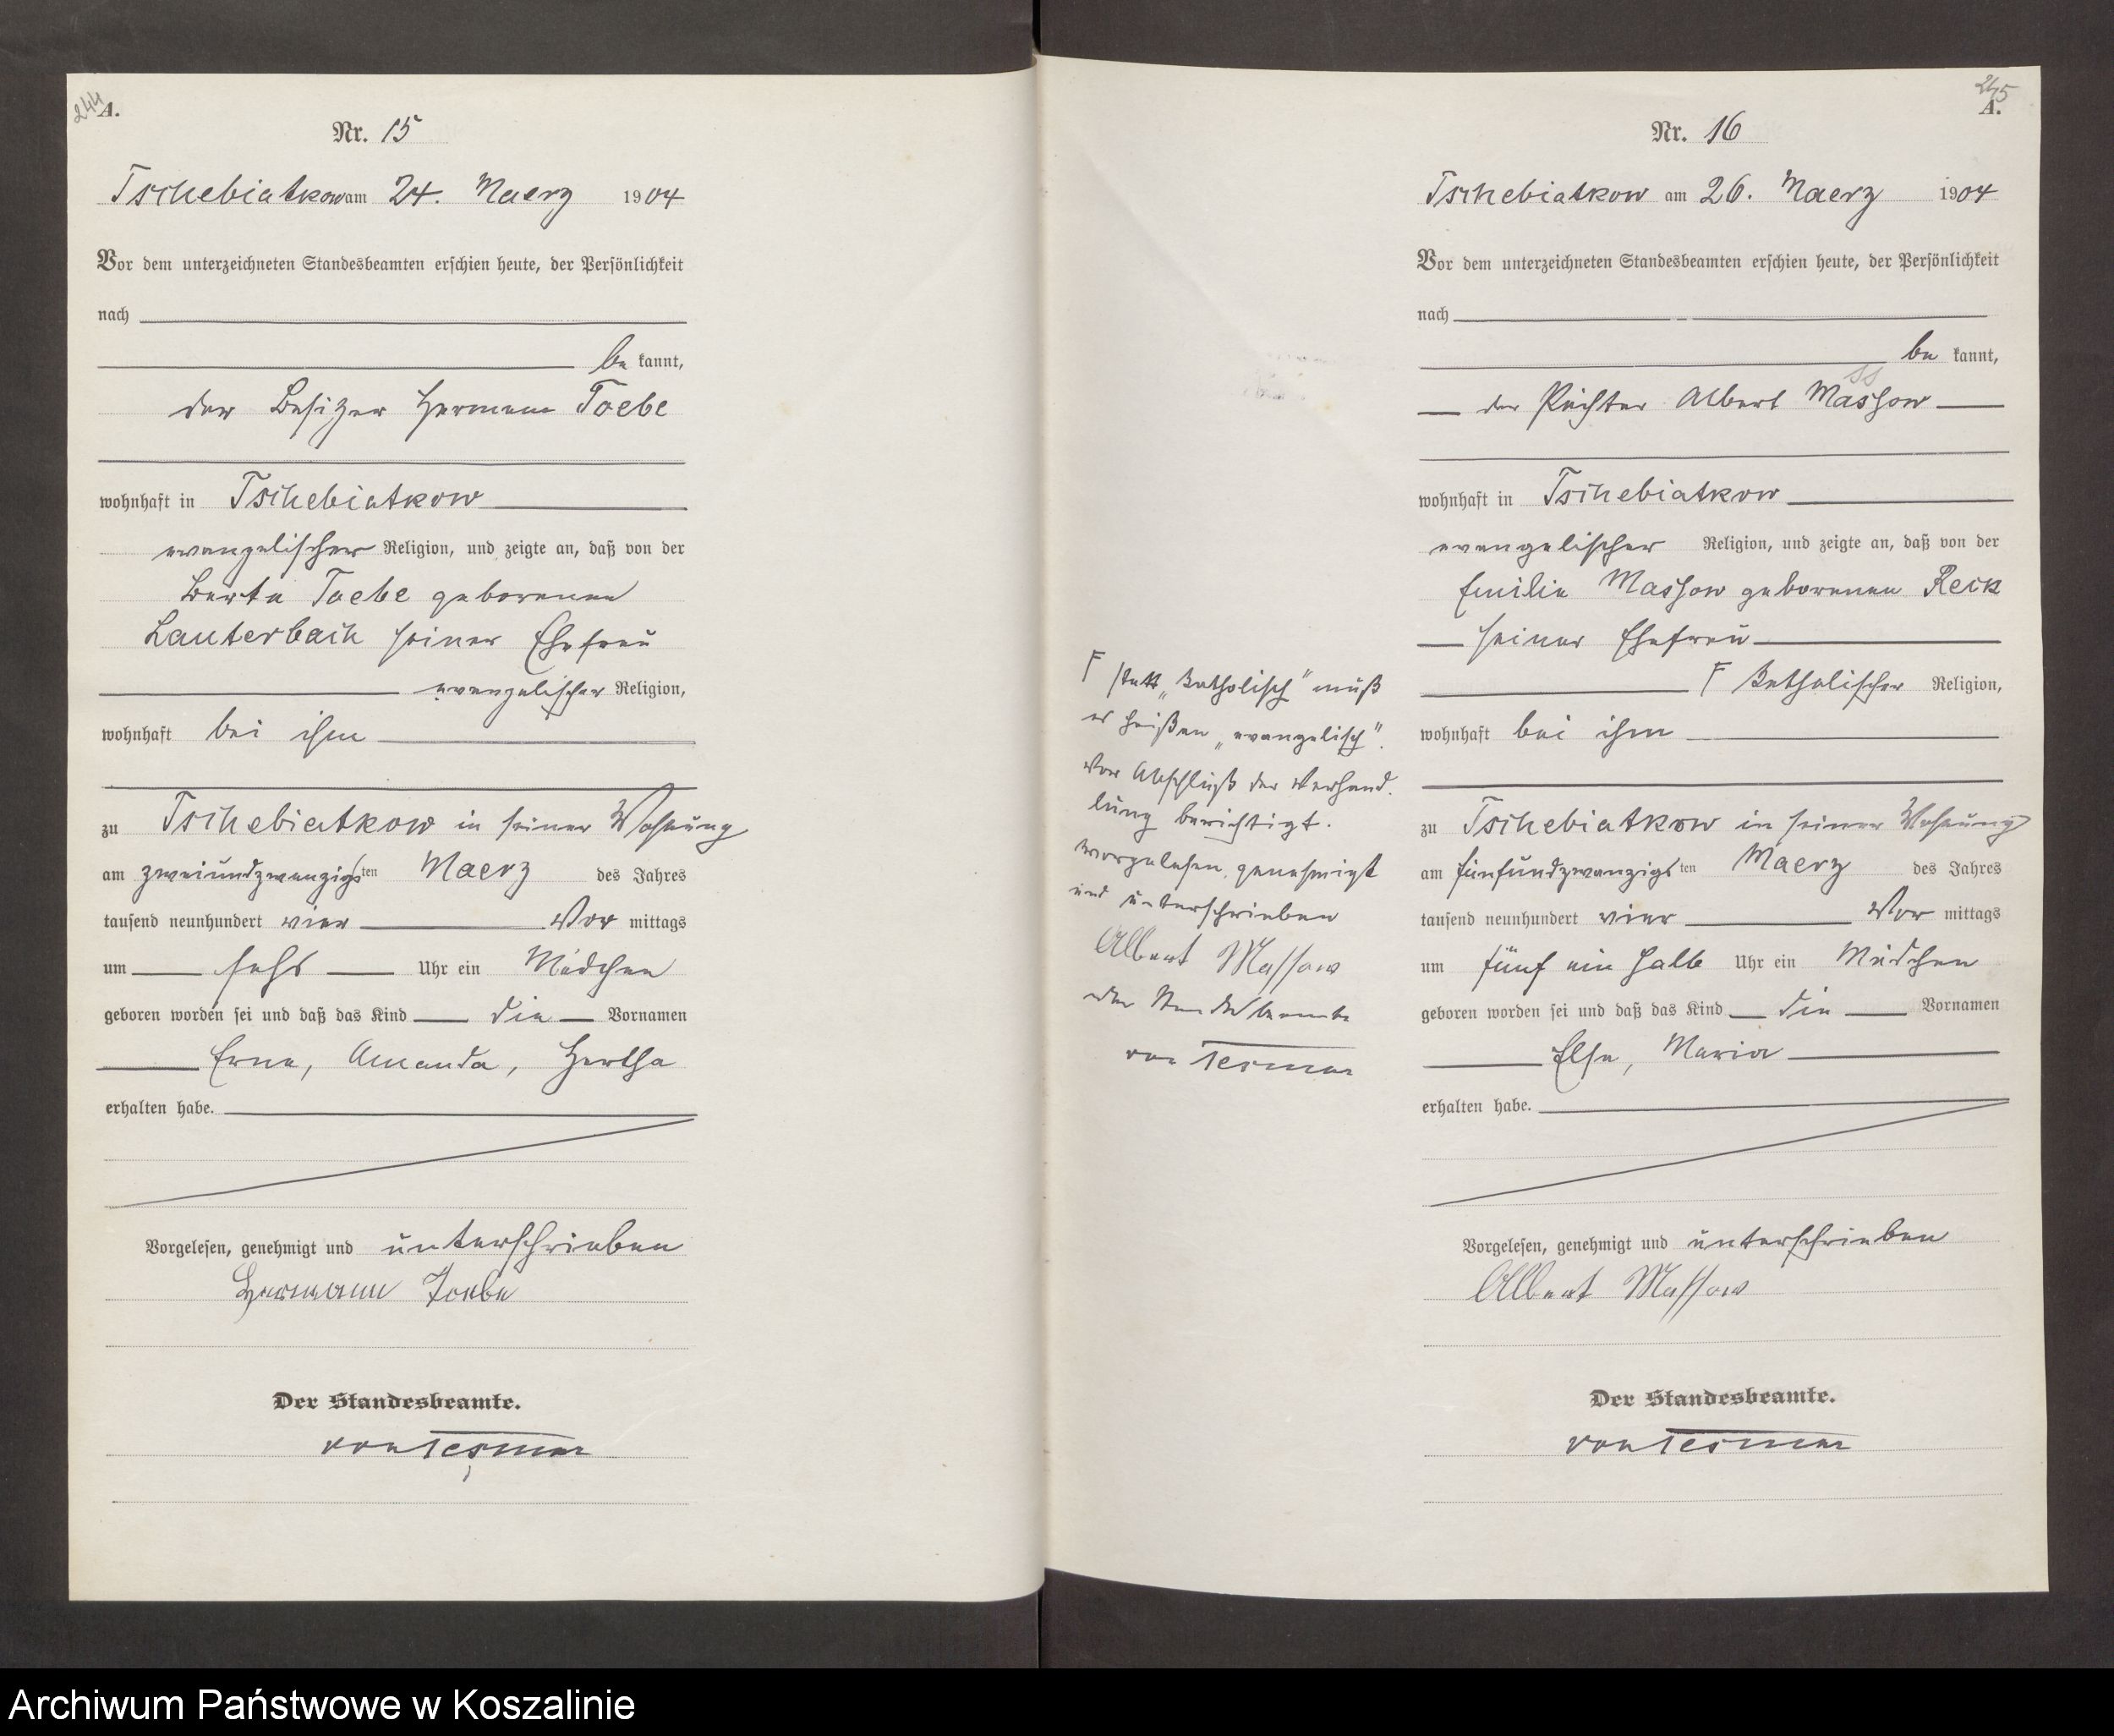 244
A.
Nr. 15
Tschebiatkow am 24. Maerz 1904
Vor dem unterzeichneten Standesbeamten erschien heute, der Persönlichkeit
nach
be kannt,
der Besitzer Hermann Toebe
wohnhaft in Tschebiatkow
evangelischer Religion, und zeigte an, daß von der
Berta Toebe geborenen
Lauterbach seiner Ehefrau
evangelischer Religion,
wohnhaft bei ihm
zu Tschebiatkow in seiner Wohnung
am zweiundzwanzigsten Maerz des Jahres
tausend neunhundert vier Vor mittags
um sechs Uhr ein Mädchen
geboren worden sei und daß das Kind die Vornamen
Erna, Amanda, Hertha
erhalten habe.
Vorgelesen, genehmigt und unterschrieben
Hermann Toebe
Der Standesbeamte.
von Tesmar
245
A.
Nr. 16
Tschebiatkow am 26. Maerz 1904
Vor dem unterzeichneten Standesbeamten erschien heute, der Persönlichkeit
nach
be kannt,
ss
der Pächter Albert Massow
wohnhaft in Tschebiatkow
evangelischer Religion, und zeigte an, daß von der
Emilie Massow geborenen Reck
seiner Ehefrau
F katholischer Religion,
wohnhaft bei ihm
zu Tschebiatkow in seiner Wohnung
am fünfundzwanzigsten Maerz des Jahres
tausend neunhundert vier Vor mittags
um fünf ein halb Uhr ein Mädchen
geboren worden sei und daß das Kind die Vornamen
Else, Maria
erhalten habe.
Vorgelesen, genehmigt und unterschrieben
Albert Massow
Der Standesbeamte.
von Tesmar
F statt „katholisch" muß
es heißen „evangelisch".
Vor Abschluß der Verhand.
lung berichtigt.
vorgelesen, genehmigt
und unterschrieben
Albert Massow
der Standesbeamte
von Tesmar
Archiwum Państwowe w Koszalinie